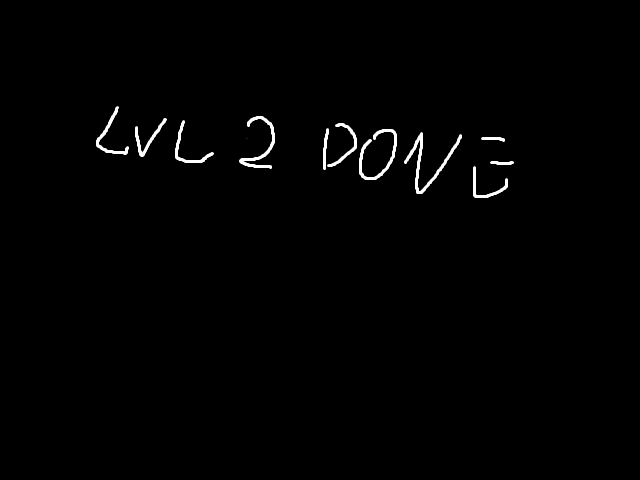 LVL 2 DONE